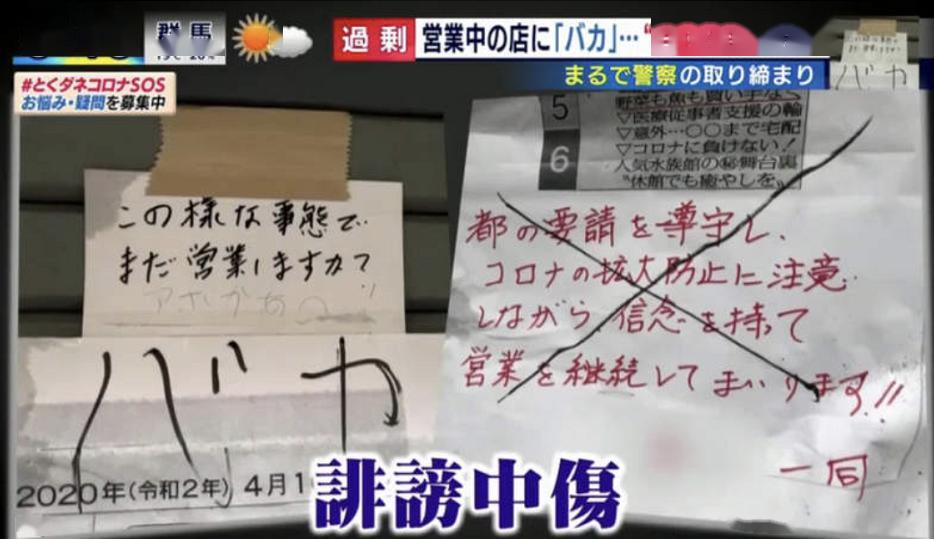 群馬
過剰 営業中の店に「バカ」…
まるで警察の取り締まり
#とくダネコロナSOS
お悩み・疑問を募集中
バカ
この様な事態で
まだ営業しますか?
アホかあ〜!!
バカ
2020年(令和2年) 4月1
5
6
野菜も魚も買い手なく
▽医療従事者支援の輪
▽意外…○○まで宅配
▽コロナに負けない!
人気水族館の㊙舞台裏
"休館でも癒やしを"
都の要請を遵守し、
コロナの拡大防止に注意
しながら、信念を持って
営業を継続してまいります!!
一同
誹謗中傷